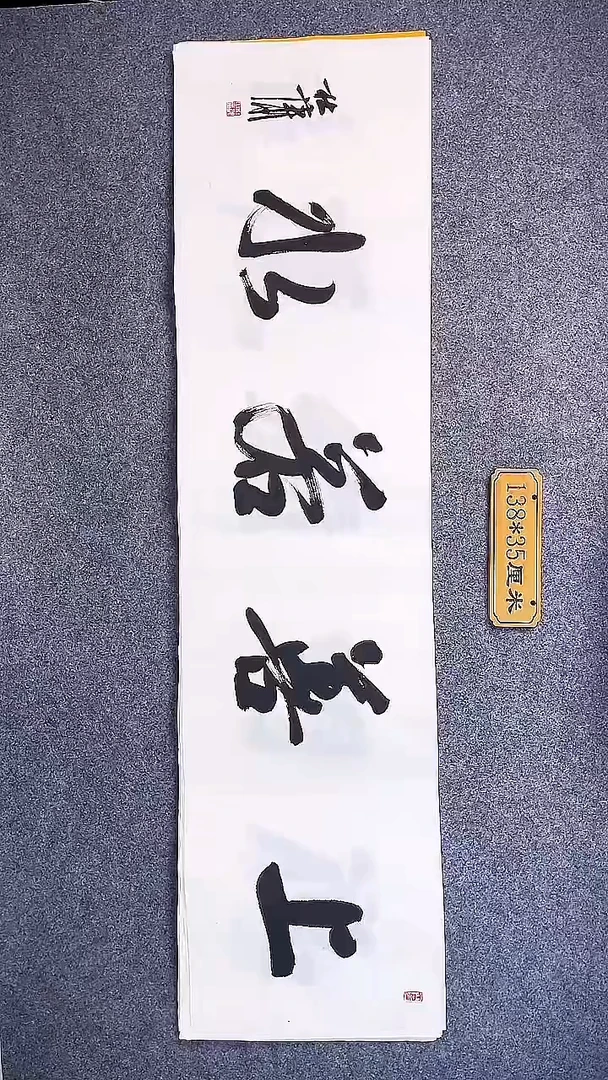 上善若水
138*35厘米